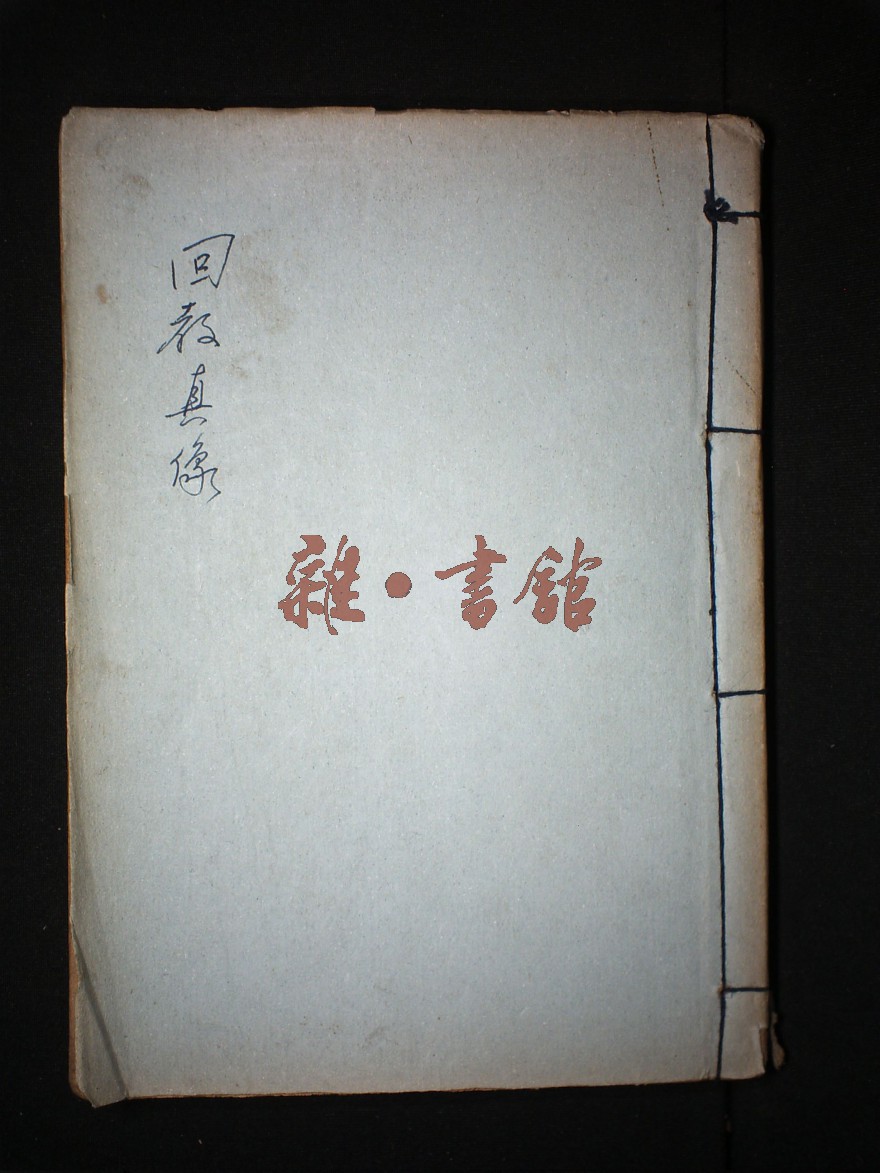 回教真像
雜·書館